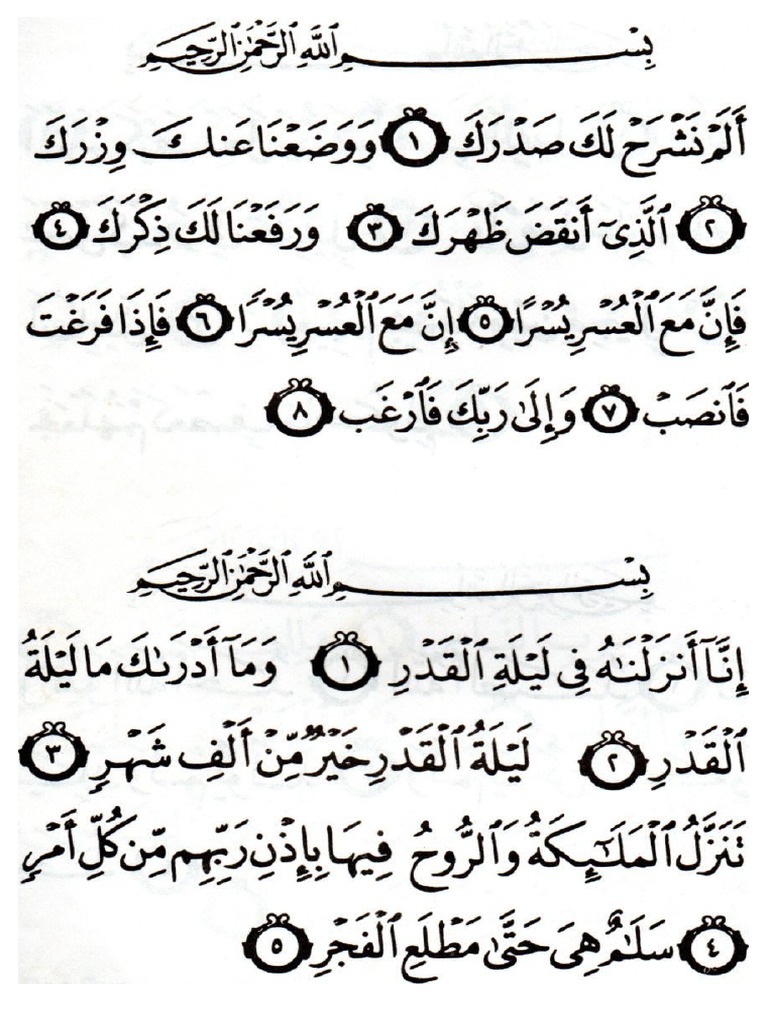 بِسْمِ ٱللَّهِ ٱلرَّحْمَٰنِ ٱلرَّحِيمِ
أَلَمْ نَشْرَحْ لَكَ صَدْرَكَ ١ وَوَضَعْنَا عَنكَ وِزْرَكَ
٢ ٱلَّذِىٓ أَنقَضَ ظَهْرَكَ ٣ وَرَفَعْنَا لَكَ ذِكْرَكَ ٤
فَإِنَّ مَعَ ٱلْعُسْرِ يُسْرًا ٥ إِنَّ مَعَ ٱلْعُسْرِ يُسْرًا ٦ فَإِذَا فَرَغْتَ
فَٱنصَبْ ٧ وَإِلَىٰ رَبِّكَ فَٱرْغَب ٨
بِسْمِ ٱللَّهِ ٱلرَّحْمَٰنِ ٱلرَّحِيمِ
إِنَّآ أَنزَلْنَٰهُ فِى لَيْلَةِ ٱلْقَدْرِ ١ وَمَآ أَدْرَىٰكَ مَا لَيْلَةُ
ٱلْقَدْرِ ٢ لَيْلَةُ ٱلْقَدْرِ خَيْرٌ مِّنْ أَلْفِ شَهْرٍ ٣
تَنَزَّلُ ٱلْمَلَٰٓئِكَةُ وَٱلرُّوحُ فِيهَا بِإِذْنِ رَبِّهِم مِّن كُلِّ أَمْرٍ
٤ سَلَٰمٌ هِىَ حَتَّىٰ مَطْلَعِ ٱلْفَجْرِ ٥